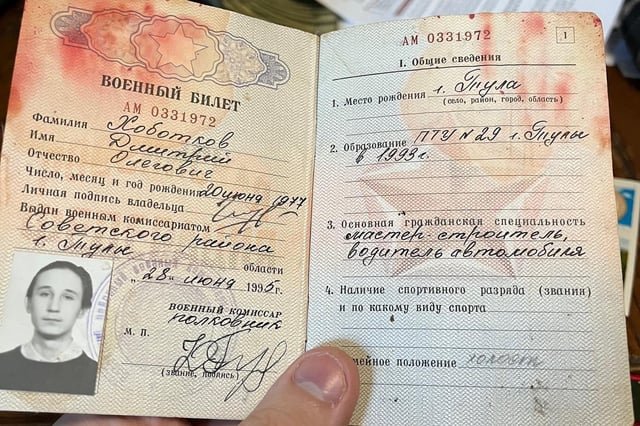 ВОЕННЫЙ БИЛЕТ
АМ 0331972
Фамилия Хоботков
Имя Дмитрий
Отчество Олегович
Число, месяц и год рождения 20 июня 1977
Личная подпись владельца
Выдан военным комиссариатом
Советского района
г. Тулы
области
"28" июня 1995г.
ВОЕННЫЙ КОМИССАР
полковник
М. П.
(звание, подпись)
АМ 0331972
1
I. Общие сведения
1. Место рождения г. Тула
(село, район, город, область)
2. Образование ПТУ N 29 г. Тулы
в 1993г.
3. Основная гражданская специальность
мастер-строитель,
водитель автомобиля
4. Наличие спортивного разряда (звания)
и по какому виду спорта
мейное положение холост